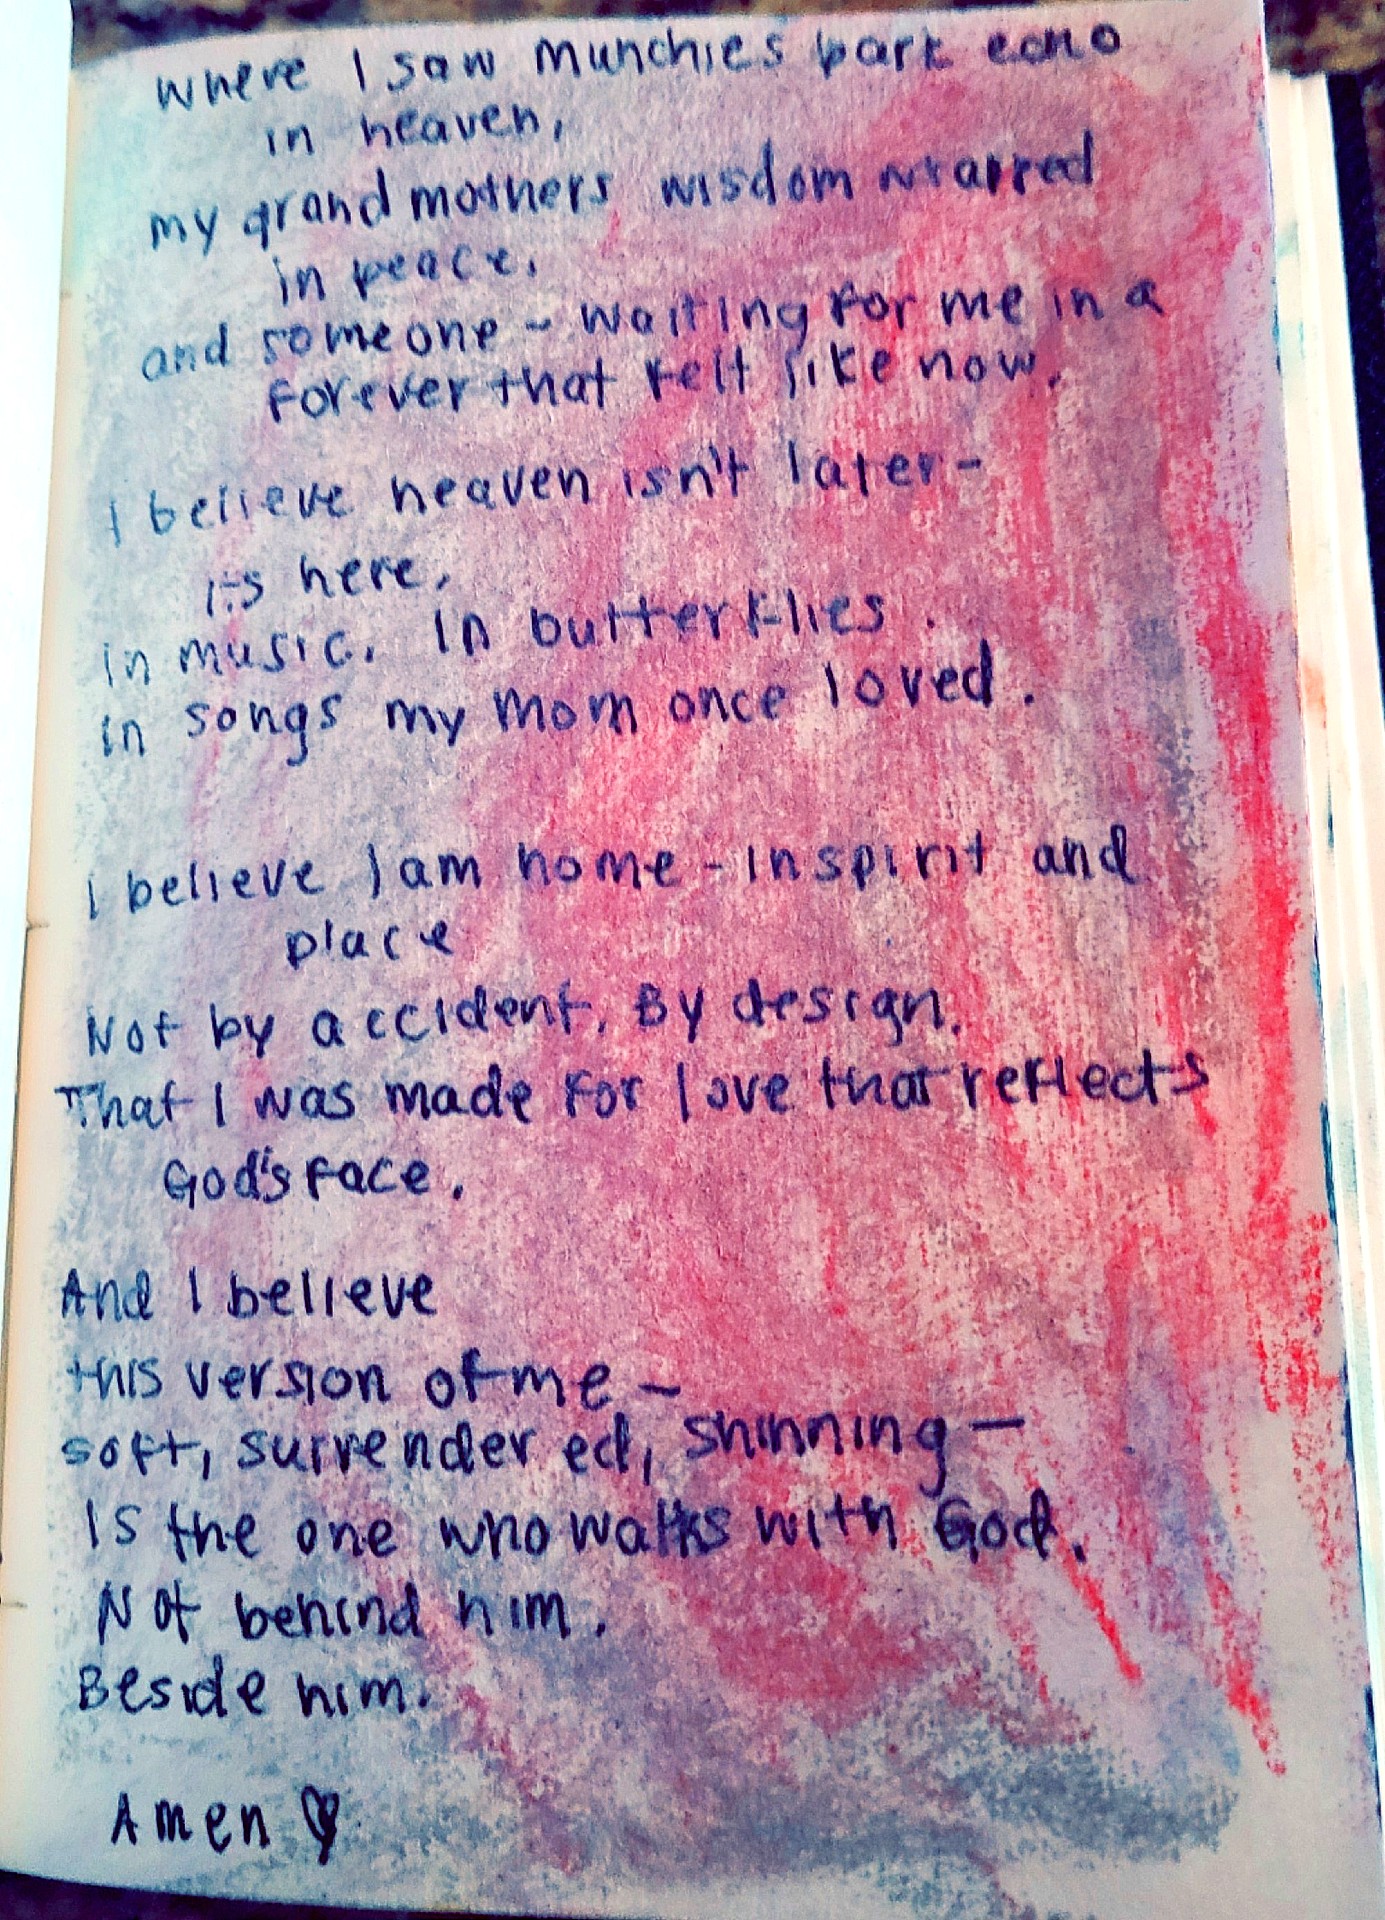 where I saw Munchies bark echo
in heaven,
my grandmothers wisdom wrapped
in peace.
and someone - waiting for me in a
forever that felt like now.
I believe heaven isn't later-
its here.
in music. In butterflies.
in songs my mom once loved.
I believe I am home - in spirit and
place
Not by accident. By design.
That I was made for love that reflects
God's face.
And I believe
this version of me -
soft, surrendered, shinning -
Is the one who walks with God.
Not behind him.
Beside him.
Amen ♡